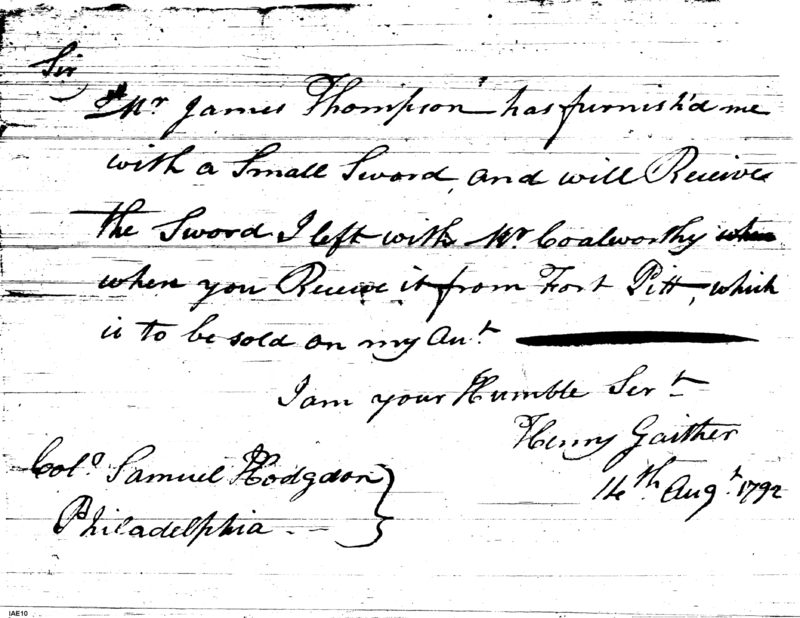 Sir
Mr James Thompson has furnish'd me
with a Small Sword, and will Receive
the Sword I left with Mr Coalworthy when
when you Receive it from Fort Pitt, which
is to be sold on my Act
I am your Humble Sert
Henry Gaither
14th Augt 1792
Colo Samuel Hodgdon
Philadelphia
IAE10